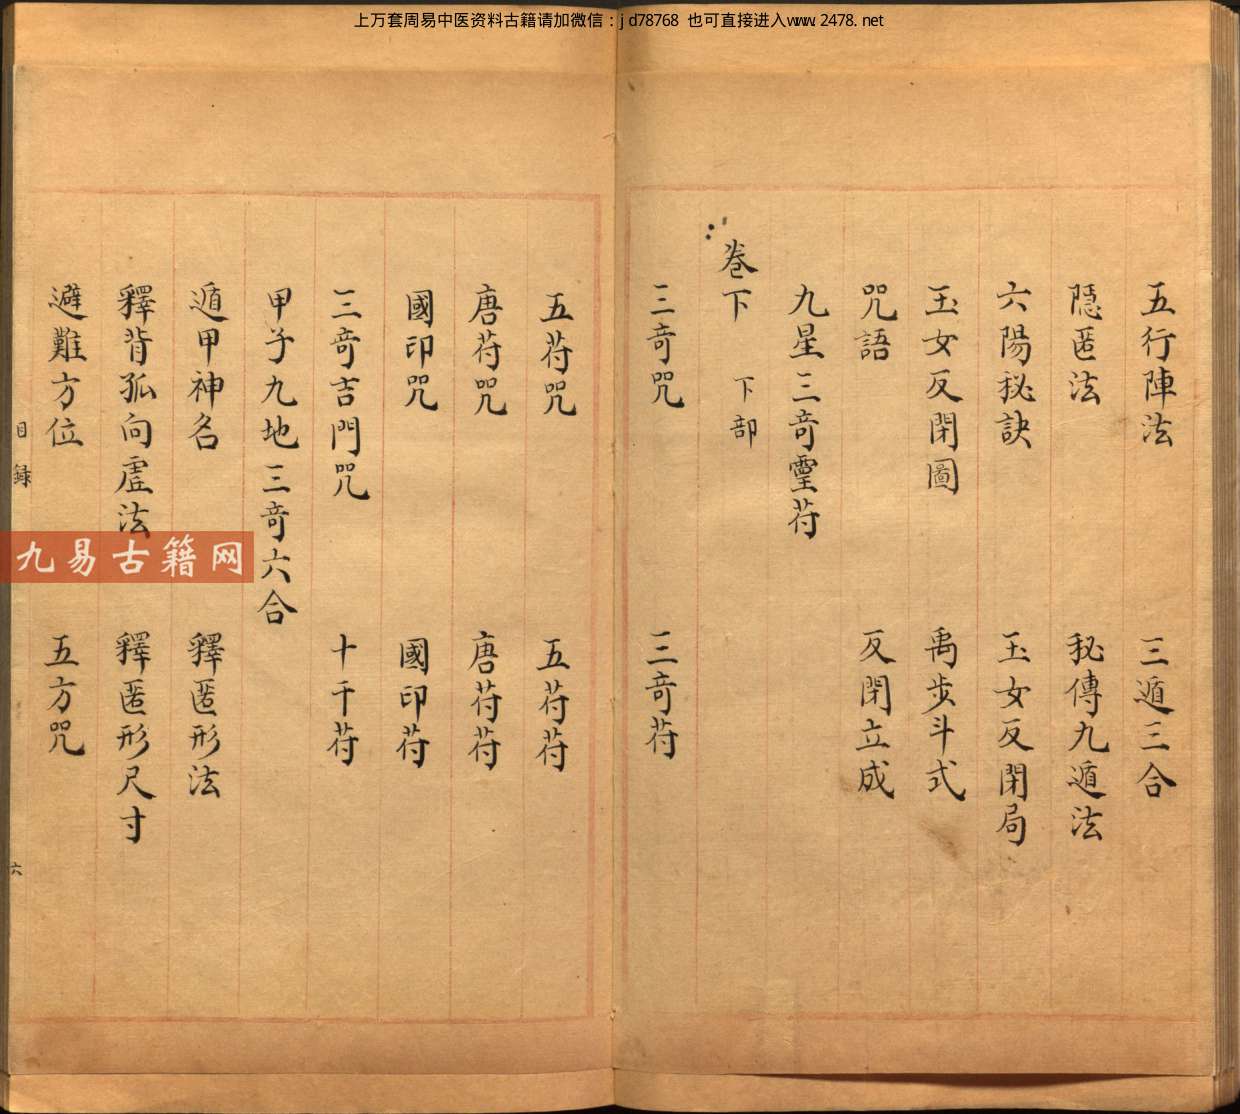 上万套周易中医资料古籍请加微信：jd78768 也可直接进入www.2478.net
五行陣法 三遁三合
隱匿法 秘傳九遁法
六陽秘訣 玉女反閉局
玉女反閉圖 禹步斗式
咒語 反閉立成
九星三奇靈符
卷下 下部
三奇咒 三奇符
五符咒 五符符
唐符咒 唐符符
國印咒 國印符
三奇吉門咒 十干符
甲子九地三奇六合
遁甲神名 釋匿形法
釋背孤向虛法 釋匿形尺寸
避難方位 五方咒
目錄
六
九易古籍网